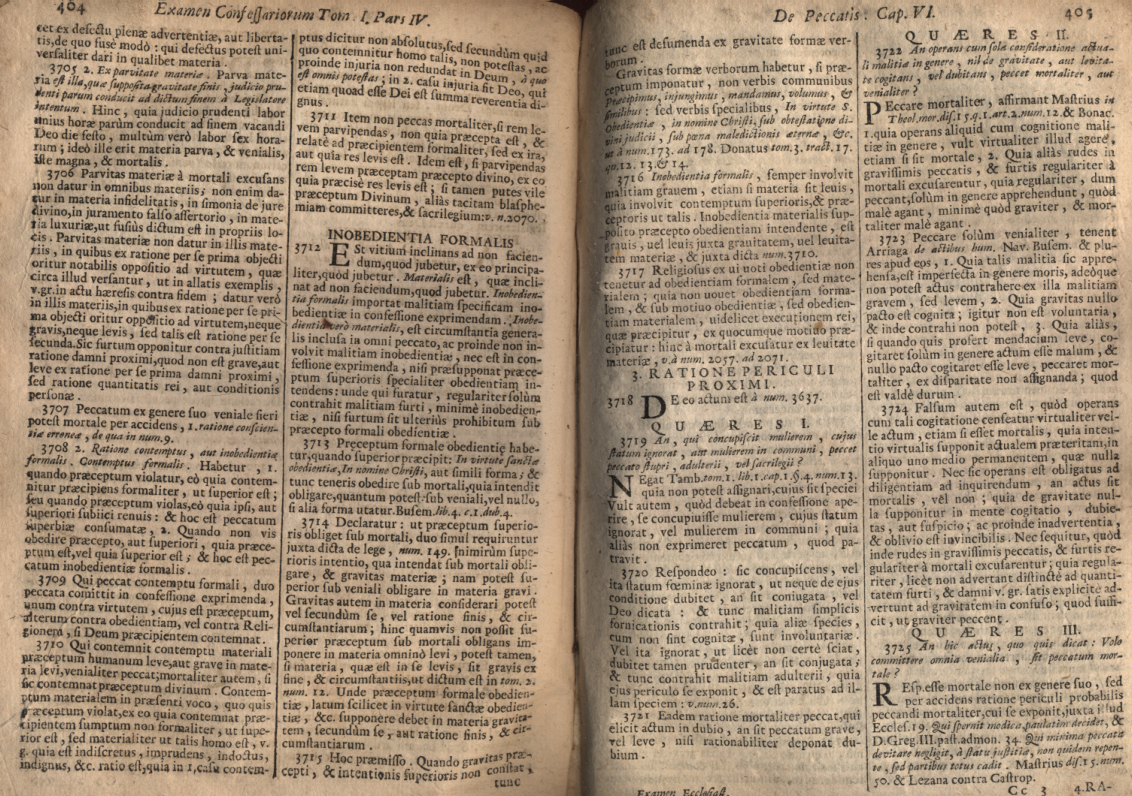 404
Examen Confessariorum Tom. I. Pars IV.
cet ex defectu plenæ advertentiæ, aut liberta-
tis, de quo fusè modò : qui defectus potest uni-
versaliter dari in qualibet materia .
3705 2. Ex parvitate materiæ . Parva mate-
ria est illa, quæ supposita gravitate finis , judicio pru-
denti parum conducit ad dictum finem à Legislatore
intentum . Hinc , quia judicio prudenti labor
unius horæ parùm conducit ad finem vacandi
Deo die festo , multùm verò labor sex hora-
rum ; ideò ille erit materia parva , & venialis,
iste magna , & mortalis .
3706 Parvitas materiæ à mortali excusans
non datur in omnibus materiis; non enim da-
tur in materia infidelitatis, in simonia de jure
divino, in juramento falso assertorio , in mate-
ria luxuriæ, ut fusiùs dictum est in propriis lo-
cis . Parvitas materiæ non datur in illis mate-
riis , in quibus ex ratione per se prima objecti
oritur notabilis oppositio ad virtutem, quæ
circa illud versantur , ut in allatis exemplis ,
v.gr. in actu hæresis contra fidem ; datur verò
in illis materiis, in quibus ex ratione per se pri-
ma objecti oritur oppositio ad virtutem, neque
gravis, neque levis , sed talis est ratione per se
secunda. Sic furtum opponitur contra justitiam
ratione damni proximi, quod non est grave, aut
leve ex ratione per se prima damni proximi,
sed ratione quantitatis rei, aut conditionis
personæ .
3707 Peccatum ex genere suo veniale fieri
potest mortale per accidens , 1. ratione conscien-
tiæ erroneæ , de qua in num. 9.
3708 2. Ratione contemptus , aut inobedientiæ
formalis . Contemptus formalis . Habetur , 1.
quando præceptum violatur, eò quia contem-
nitur præcipiens formaliter , ut superior est ;
seu quando præceptum violas, eò quia ipsi, aut
superiori subiici renuis : & hoc est peccatum
superbiæ consumatæ , 2. Quando non vis
obedire præcepto, aut superiori , quia præce-
ptum est, vel quia superior est ; & hoc est pec-
catum inobedientiæ formalis .
3709 Qui peccat contemptu formali , duo
peccata comittit in confessione exprimenda ,
unum contra virtutem , cujus est præceptum,
alterum contra obedientiam, vel contra Reli-
gionem , si Deum præcipientem contemnat .
3710 Qui contemnit contemptu materiali
præceptum humanum leve, aut grave in mate-
ria levi, venialiter peccat; mortaliter autem , si
sic contemnat præceptum divinum . Contem-
ptum materialem in præsenti voco , quo quis
præceptum violat, ex eo quia contemnat præ-
cipientem sumptum non formaliter , ut supe-
rior est , sed materialiter ut talis homo est , v.
g. quia est indiscretus , imprudens , indoctus,
indignus, &c. ratio est, quia in 1. casu contem-
ptus dicitur non absolutus, sed secundùm quid
quo contemnitur homo talis, non potestas, ac
proinde injuria non redundat in Deum , à quo
est omnis potestas ; in 2. casu injuria fit Deo, qui
etiam quoad esse Dei est summa reverentia di-
gnus .
3711 Item non peccas mortaliter, si rem le-
vem parvipendas, non quia præcepta est , &
relatè ad præcipientem formaliter, sed ex ira,
aut quia res levis est . Idem est, si parvipendas
rem levem præceptam præcepto divino, ex eo
quia præcisè res levis est ; si tamen putes vile
præceptum Divinum , aliàs tacitam blasphe-
miam committeres, & sacrilegium: v. n. 2070.
INOBEDIENTIA FORMALIS
3712 ESt vitium inclinans ad non facien-
dum, quod jubetur, ex eo principa-
liter, quòd jubetur . Materialis est , quæ incli-
nat ad non faciendum, quod jubetur. Inobedien-
tia formalis importat malitiam specificam ino-
bedientiæ in confessione exprimendam . Inobe-
dientia verò materialis, est circumstantia genera-
lis inclusa in omni peccato, ac proinde non in-
volvit malitiam inobedientiæ , nec est in con-
fessione exprimenda , nisi præsupponat præce-
ptum superioris specialiter obedientiam in-
tendens: unde qui furatur , regulariter solùm
contrahit malitiam furti , minimè inobedien-
tiæ , nisi furtum sit ulteriùs prohibitum sub
præcepto formali obedientiæ .
3713 Preceptum formale obedientiæ habe-
tur, quando superior præcipit : In virtute sanctæ
obedientiæ, In nomine Christi, aut simili forma ; &
tunc teneris obedire sub mortali, quia intendit
obligare, quantum potest : sub veniali, vel nullo,
si alia forma utatur. Busem. lib. 4. c. 1. dub. 4.
3714 Declaratur : ut præceptum superio-
ris obliget sub mortali, duo simul requiruntur
juxta dicta de lege , num. 149. Inimirùm supe-
rioris intentio, qua intendat sub mortali obli-
gare , & gravitas materiæ ; nam potest su-
perior sub veniali obligare in materia gravi.
Gravitas autem in materia considerari potest
vel secundùm se , vel ratione finis , & cir-
cumstantiarum ; hinc quamvis non possit su-
perior præceptum sub mortali obligans im-
ponere in materia omninò levi , potest tamen,
si materia , quæ est in se levis , sit gravis ex
fine , & circumstantiis, ut dictum est in tom. 2.
num. 12. Unde præceptum formale obedien-
tiæ, latum scilicet in virtute sanctæ obedien-
tiæ , &c. supponere debet in materia gravita-
tem , secundùm se , aut ratione finis , & cir-
cumstantiarum .
3715 Hoc præmisso . Quando gravitas præ-
cepti , & intentionis superioris non constat ,
tunc
De Peccatis . Cap. VI.
405
tunc est desumenda ex gravitate formæ ver-
borum .
Gravitas formæ verborum habetur , si præ-
ceptum imponatur , non verbis communibus
Præcipimus, injungimus , mandamus, volumus , &
similibus : sed verbis specialibus , In virtute S.
Obedientiæ , in nomine Christi, sub obtestatione di-
vini judicii , sub pœna maledictionis æternæ , &c.
ut à num. 173. ad 178. Donatus tom. 3. tract. 17.
qu. 12. 13. & 14.
3716 Inobedientia formalis , semper involvit
malitiam grauem , etiam si materia sit leuis ,
quia involvit contemptum superioris, & præ-
ceptoris ut talis . Inobedientia materialis sup-
posito præcepto obedientiam intendente , est
grauis , uel leuis juxta grauitatem, uel leuita-
tem materiæ , & juxta dicta num. 3710.
3717 Religiosus ex ui uoti obedientiæ non
tenetur ad obedientiam formalem , sed mate-
rialem ; quia non uouet obedientiam forma-
lem , & sub motiuo obedientiæ, sed obedien-
tiam materialem , uidelicet executionem rei,
quæ præcipitur , ex quocumque motiuo præ-
cipiatur : hinc à mortali excusatur ex leuitate
materiæ , v. à num. 2057. ad 2071.
3. RATIONE PERICULI
PROXIMI.
3718 DE eo actum est à num. 3637.
QUÆRES I.
3719 An , qui concupiscit mulierem , cujus
statum ignorat , aut mulierem in communi , peccet
peccato stupri , adulterii , vel sacrilegii ?
NEgat Tamb. tom. 1. lib. 1. cap. 1. §. 4. num. 13.
quia non potest assignari, cujus sit speciei
Vult autem , quòd debeat in confessione ape-
rire , se concupiuisse mulierem , cujus statum
ignorat, vel mulierem in communi ; quia
aliàs non exprimeret peccatum , quod pa-
travit .
3720 Respondeo : sic concupiscens , vel
ita statum fœminæ ignorat , ut neque de ejus
conditione dubitet , an sit coniugata , vel
Deo dicata : & tunc malitiam simplicis
fornicationis contrahit ; quia aliæ species ,
cum non sint cognitæ , sunt involuntariæ.
Vel ita ignorat , ut licèt non certè sciat ,
dubitet tamen prudenter , an sit conjugata ;
& tunc contrahit malitiam adulterii , quia
ejus periculo se exponit , & est paratus ad il-
lam speciem : v. num. 26.
3721 Eadem ratione mortaliter peccat, qui
elicit actum in dubio , an sit peccatum grave,
vel leve , nisi rationabiliter deponat du-
bium .
Examen Ecclesiast.
QUÆRES II.
3722 An operans cum sola consideratione actua-
li malitiæ in genere , nil de gravitate , aut levita-
te cogitans , vel dubitans , peccet mortaliter , aut
venialiter ?
PEccare mortaliter , affirmant Mastrius in
Theol. mor. dis. 15. q. 1. art. 2. num. 12. & Bonac.
1. quia operans aliquid cum cognitione mali-
tiæ in genere , vult virtualiter illud agere,
etiam si sit mortale , 2. Quia aliàs rudes in
gravissimis peccatis , & furtis regulariter à
mortali excusarentur , quia regulariter , dum
peccant, solùm in genere apprehendunt , quòd
malè agant , minimè quòd graviter , & mor-
taliter malè agant .
3723 Peccare solùm venialiter , tenent
Arriaga de actibus hum. Nav. Busem. & plu-
res apud eos , 1. Quia talis malitia sic appre-
hensa, est imperfecta in genere moris, adeòque
non potest actus contrahere ex illa malitiam
gravem , sed levem , 2. Quia gravitas nullo
pacto est cognita ; igitur non est voluntaria ,
& inde contrahi non potest , 3. Quia aliàs ,
si quando quis profert mendacium leve , co-
gitaret solùm in genere actum esse malum , &
nullo pacto cogitaret esse leve , peccaret mor-
taliter , ex disparitate non assignanda ; quod
est valdè durum .
3724 Falsum autem est , quòd operans
cum tali cogitatione censeatur virtualiter vel-
le actum , etiam si esset mortalis , quia inten-
tio virtualis supponit actualem præteritam, in
aliquo uno medio permanentem , quæ nulla
supponitur . Nec sic operans est obligatus ad
diligentiam ad inquirendum , an actus sit
mortalis , vel non ; quia de gravitate nul-
la supponitur in mente cogitatio , dubie-
tas , aut suspicio ; ac proinde inadvertentia ,
& oblivio est invincibilis . Nec sequitur, quòd
inde rudes in gravissimis peccatis, & furtis re-
gulariter à mortali excusarentur ; quia regula-
riter , licèt non advertant distinctè ad quanti-
tatem furti , & damni v. gr. satis explicitè ad-
vertunt ad gravitatem in confuso ; quod suffi-
cit , ut graviter peccent .
QUÆRES III.
3725 An hic actus , quo quis dicat : Volo
committere omnia venialia , sit peccatum mor-
tale ?
REsp. esse mortale non ex genere suo , sed
per accidens ratione periculi probabilis
peccandi mortaliter, cui se exponit, juxta illud
Eccles. 19. Qui spernit modica, paulatim decidet, &
D. Greg. III. past. admon. 34. Qui minima peccata
devitare negligit, à statu justitiæ, non quidem repen-
te , sed partibus totus cadit . Mastrius dis. 15. num.
50. & Lezana contra Castrop.
Cc 3 4. RA-